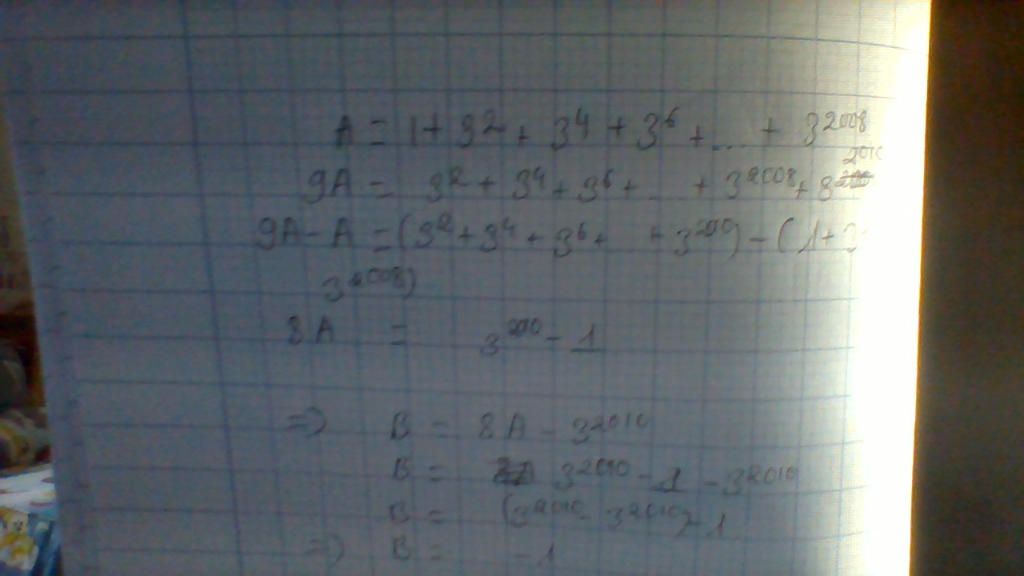 A = 1 + 3² + 3⁴ + 3⁶ + ... + 3²⁰⁰⁸
9A = 3² + 3⁴ + 3⁶ + ... + 3²⁰⁰⁸ + 3²⁰¹⁰
9A - A = (3² + 3⁴ + 3⁶ + + 3²⁰¹⁰) - (1 + 3
3²⁰⁰⁸)
8A = 3²⁰¹⁰ - 1
=> B = 8A - 3²⁰¹⁰
B = 3²⁰¹⁰ - 1 - 3²⁰¹⁰
B = (3²⁰¹⁰ - 3²⁰¹⁰) - 1
=> B = -1